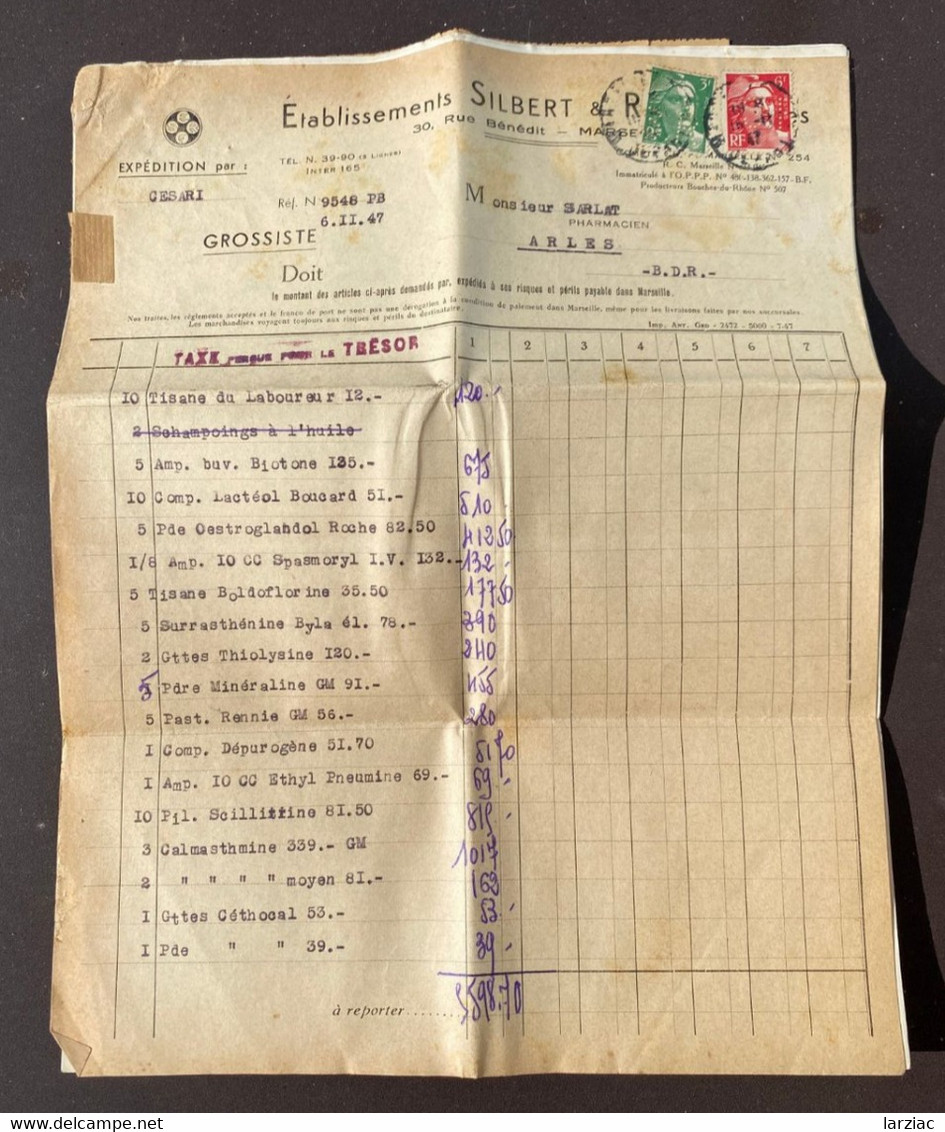 Établissements SILBERT & R
30, Rue Bénédit — MARSE
EXPÉDITION par :
CESARI
TÉL. N. 39-90 (5 LIGNES)
INTER 165
254
R. C. Marseille
Immatriculé à l'O.P.P.P. Nº 486-138-362-157-B.F.
Producteurs Bouches-du-Rhône Nº 507
3F
6F
RF
Réf. N 9548 PB
6.II.47
GROSSISTE
Monsieur SARLAT
PHARMACIEN
ARLES
-B.D.R.-
Doit
le montant des articles ci-après demandés par, expédiés à ses risques et périls payable dans Marseille.
Nos traites, les règlements acceptés et le franco de port ne sont pas une dérogation à la condition de paiement dans Marseille, même pour les livraisons faites par nos succursales.
Les marchandises voyagent toujours aux risques et périls du destinataire.
Imp. Anr. Gen - 2472 - 5000 - 7-47
TAXE PERÇUE POUR LE TRÉSOR 1 2 3 4 5 6 7
IO Tisane du Laboureur I2.- 120.-
2 Schampoings à l'huile
5 Amp. buv. Biotone I35.- 675
IO Comp. Lactéol Boucard 5I.- 510
5 Pde Oestroglandol Roche 82.50 412 50
I/6 Amp. IO CC Spasmoryl I.V. I32.- 132.-
5 Tisane Boldoflorine 35.50 177 50
5 Surrasthénine Byla él. 78.- 390
2 Gttes Thiolysine I20.- 240
5 Pdre Minéraline GM 9I.- 455
5 Past. Rennie GM 56.- 280
I Comp. Dépurogène 5I.70 51 70
I Amp. IO CC Ethyl Pneumine 69.- 69.-
IO Pil. Scillitrine 8I.50 815.-
3 Calmasthmine 339.- GM 1017
2 " " " " moyen 8I.- 162
I Gttes Céthocal 53.- 53.-
I Pde " " 39.- 39.-
à reporter....... 5598.70
larziac